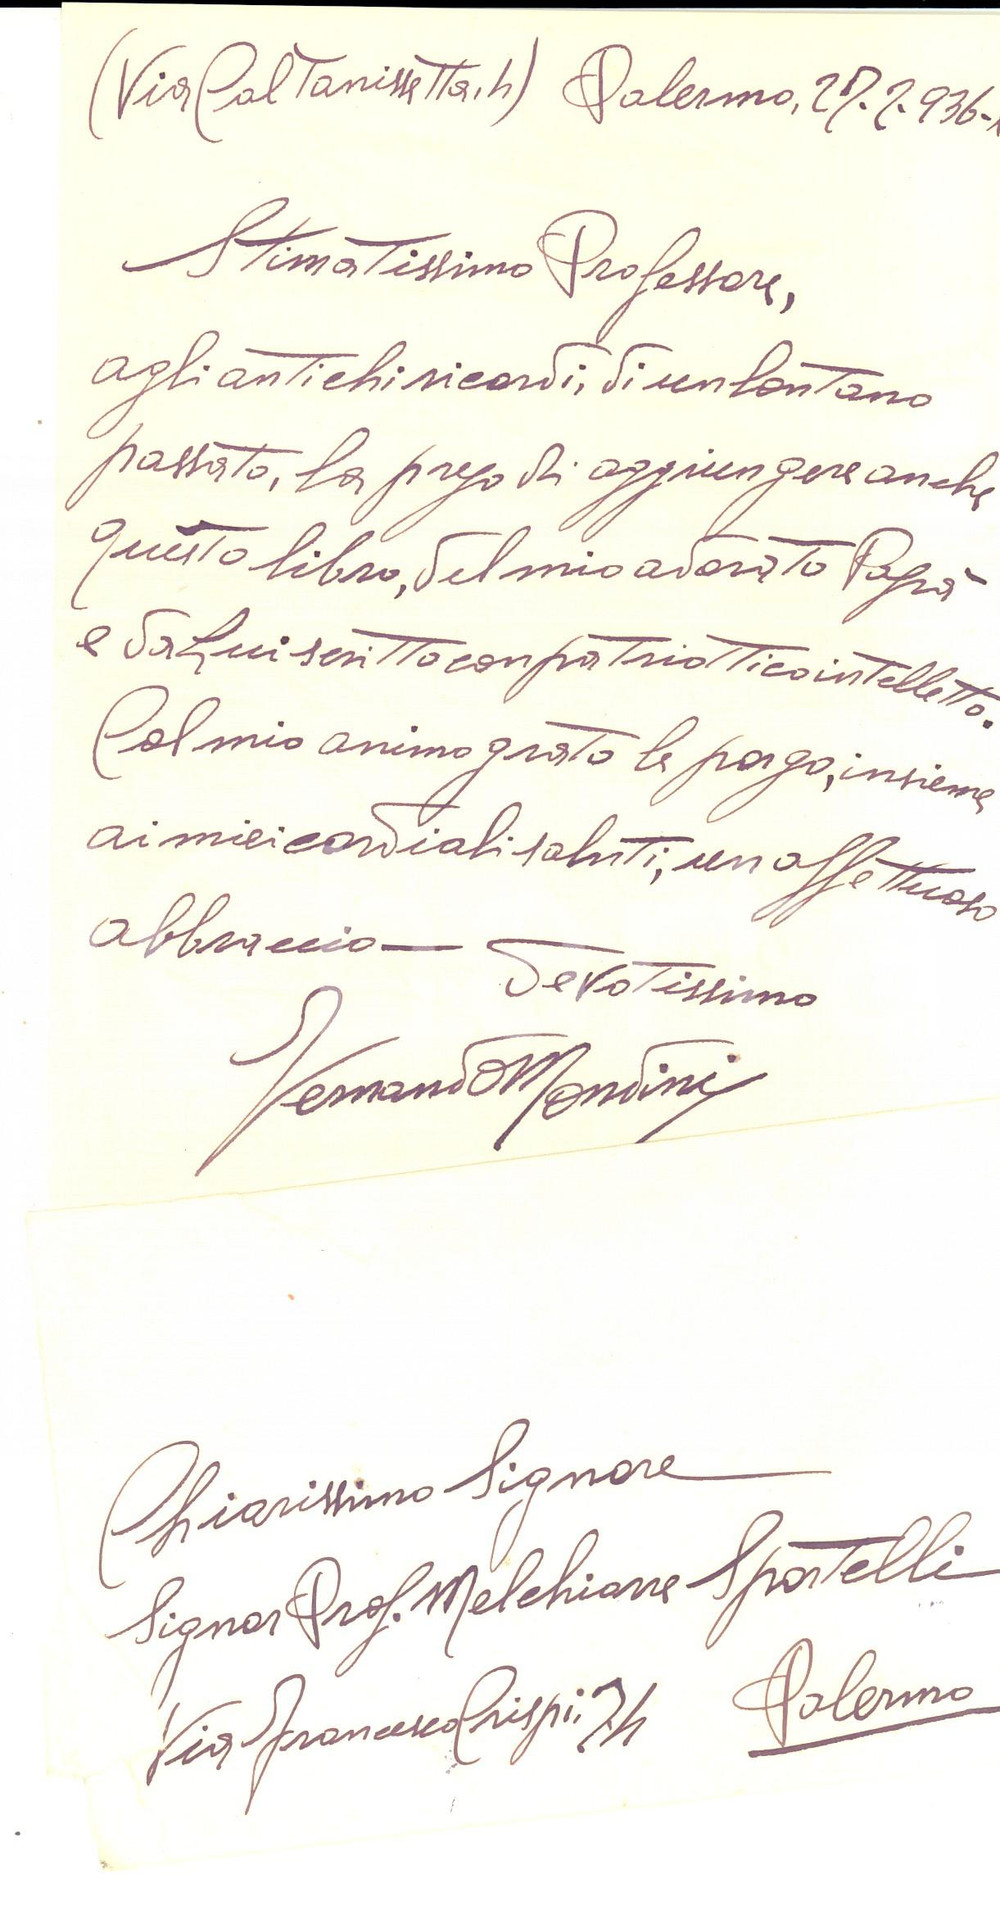 (Via Caltanissetta, 4) Palermo, 27. 2. 936-
Stimatissimo Professore,
agli antichi ricordi, di un lontano
passato, la prego di aggiungere anche
questo libro, del mio adorato Papà
e da Lui scritto con patriottico intelletto.
Col mio animo grato le porgo, insieme
ai miei cordiali saluti, un affettuoso
abbraccio —
devotissimo
Fernando Mondini
Chiarissimo Signore
Signor Prof. Melchiorre Sportelli
Via Francesco Crispi, 74 Palermo